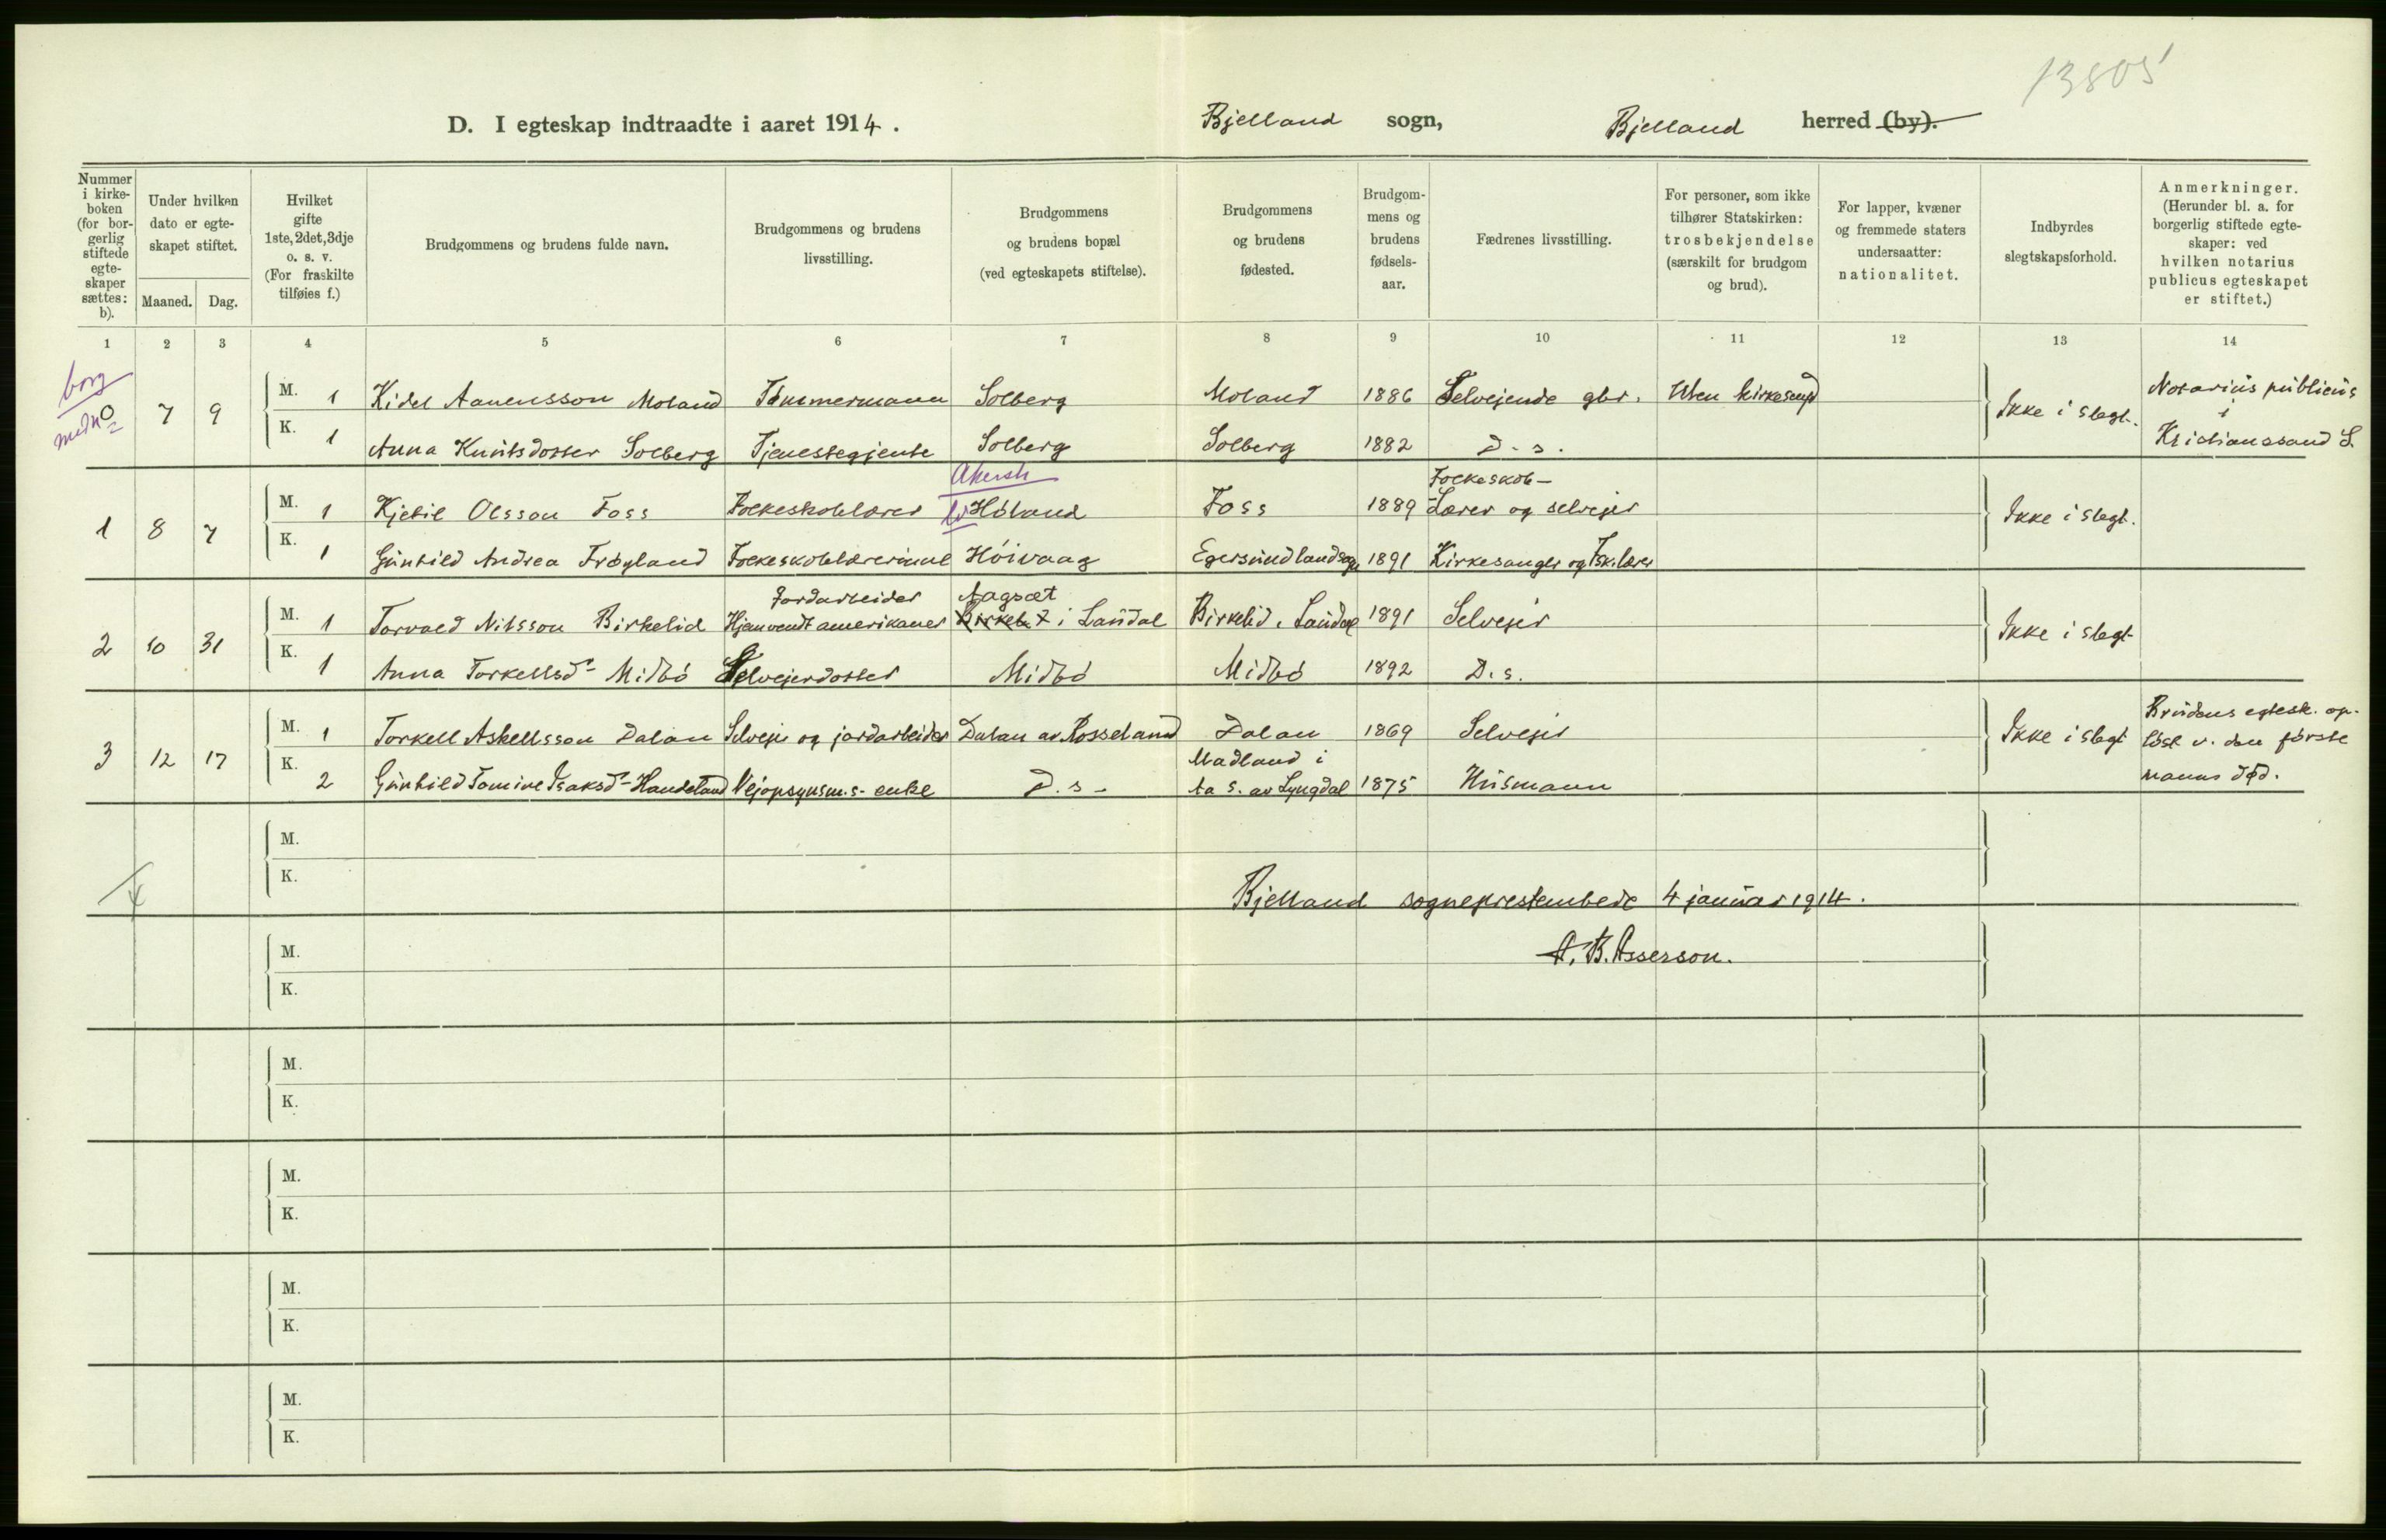 13805
D. I egteskap indtraadte i aaret 1914. Bjelland sogn, Bjelland herred (by).
Nummer i kirke-boken (for bor-gerlig stiftede egte-skaper sættes: b).
Under hvilken dato er egte-skapet stiftet.
Maaned. Dag.
Hvilket gifte 1ste, 2det, 3dje o. s. v. (For fraskilte tilføies f.)
Brudgommens og brudens fulde navn.
Brudgommens og brudens livsstilling.
Brudgommens og brudens bopæl (ved egteskapets stiftelse).
Brudgommens og brudens fødested.
Brudgom-mens og brudens fødsels-aar.
Fædrenes livsstilling.
For personer, som ikke tilhører Statskirken: trosbekjendelse (særskilt for brudgom og brud).
For lapper, kvæner og fremmede staters undersaatter: nationalitet.
Indbyrdes slegtskapsforhold.
Anmerkninger. (Herunder bl. a. for borgerlig stiftede egte-skaper: ved hvilken notarius publicus egteskapet er stiftet.)
1 2 3 4 5 6 7 8 9 10 11 12 13 14
borg
7 9 M. 1 Kidel Aanensson Moland Tømmermann Solberg Moland 1886 Selveiende gbr. Uten kirkesamf Ikke i slegt. Notarius publicus i
K. 1 Anna Knutsdotter Solberg Tjenestegjente Solberg Solberg 1882 D. s. Kristianssand S.
Akersh
Folkeskole-
1 8 7 M. 1 Kjetil Olsson Foss Folkeskolelærer Høland Foss 1889 Lærer og selveier Ikke i slegt.
K. 1 Gunhild Andrea Frøyland Folkeskolelærerinne Høivaag Egersund landsogn 1891 Kirkesanger og Fsk.lærer
Jordarbeider Aagsæt
2 10 31 M. 1 Torvald Nilsson Birkelid Hjemvendt amerikaner i Laudal Birkelid, Laudal 1891 Selveier Ikke i slegt
K. 1 Anna Torkellsd- Midbø Selveierdotter Midbø Midbø 1892 D. s.
3 12 17 M. 1 Torkell Askellsson Dalan Selveier og jordarbeider Dalan av Rosseland Dalan 1869 Selveier Ikke i slegt Brudens egtesk. op-løst v. den første manns død.
K. 2 Gunhild Tomine Isaksd- Handeland Vejopsynsm.s- enke D. s. Madland i Aa s. av Lyngdal 1875 Husmann
M.
K.
Bjelland sogneprestembede 4 januar 1914.
M.
A. B. Asserson.
K.
M.
K.
M.
K.
M.
K.
M.
K.